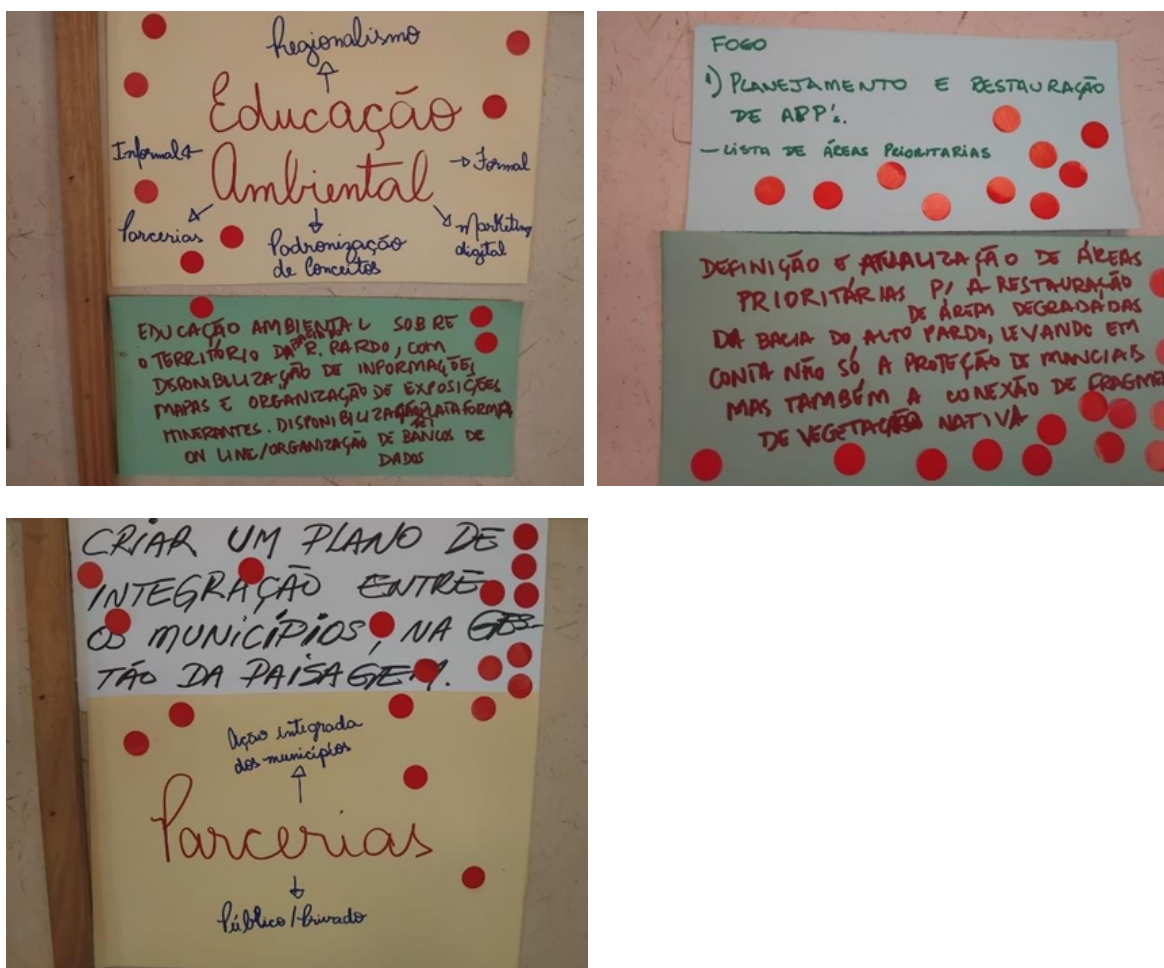 Regionalismo
Educação
Informal
Ambiental
Formal
Parcerias
Padronização
de Conceitos
Marketing
digital
EDUCAÇÃO AMBIENTAL SOBRE
O TERRITÓRIO DA BACIA DO R. PARDO, COM
DISPONIBILIZAÇÃO DE INFORMAÇÕES,
MAPAS E ORGANIZAÇÃO DE EXPOSIÇÕES
ITINERANTES. DISPONIBILIZAÇÃO PLATAFORMA
ON LINE/ORGANIZAÇÃO DE BANCOS DE
DADOS
FOGO
1) PLANEJAMENTO E RESTAURAÇÃO
DE APP's.
- LISTA DE ÁREAS PRIORITARIAS
DEFINIÇÃO E ATUALIZAÇÃO DE ÁREAS
PRIORITÁRIAS P/ A RESTAURAÇÃO
DE ÁREAS DEGRADADAS
DA BACIA DO ALTO PARDO, LEVANDO EM
CONTA NÃO SÓ A PROTEÇÃO DE MANCIAIS
MAS TAMBÉM A CONEXÃO DE FRAGME
DE VEGETAÇÃO NATIVA
CRIAR UM PLANO DE
INTEGRAÇÃO ENTRE
OS MUNICÍPIOS, NA GES-
TÃO DA PAISAGEM.
Ação integrada
dos municípios
Parcerias
Público/Privado